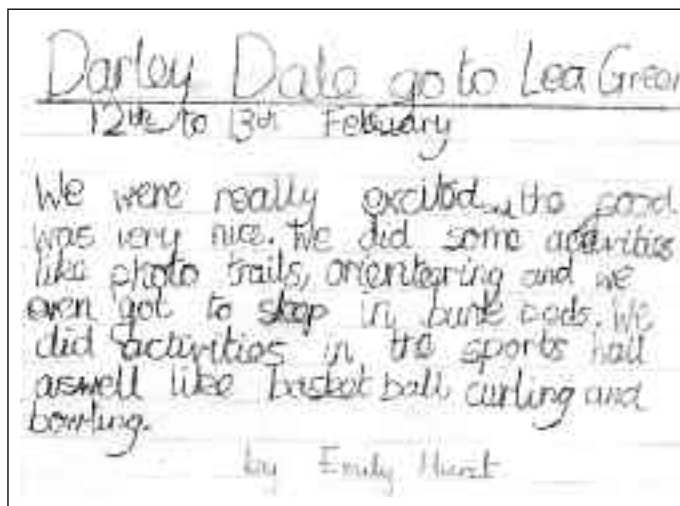 Darley Dale go to Lea Green
12th to 13th February
We were really excited, the food
was very nice. We did some activities
like photo trails, orienteering and we
even got to sleep in bunk beds. We
did activities in the sports hall
aswell like basket ball, curling and
bowling.
by Emily Hurst